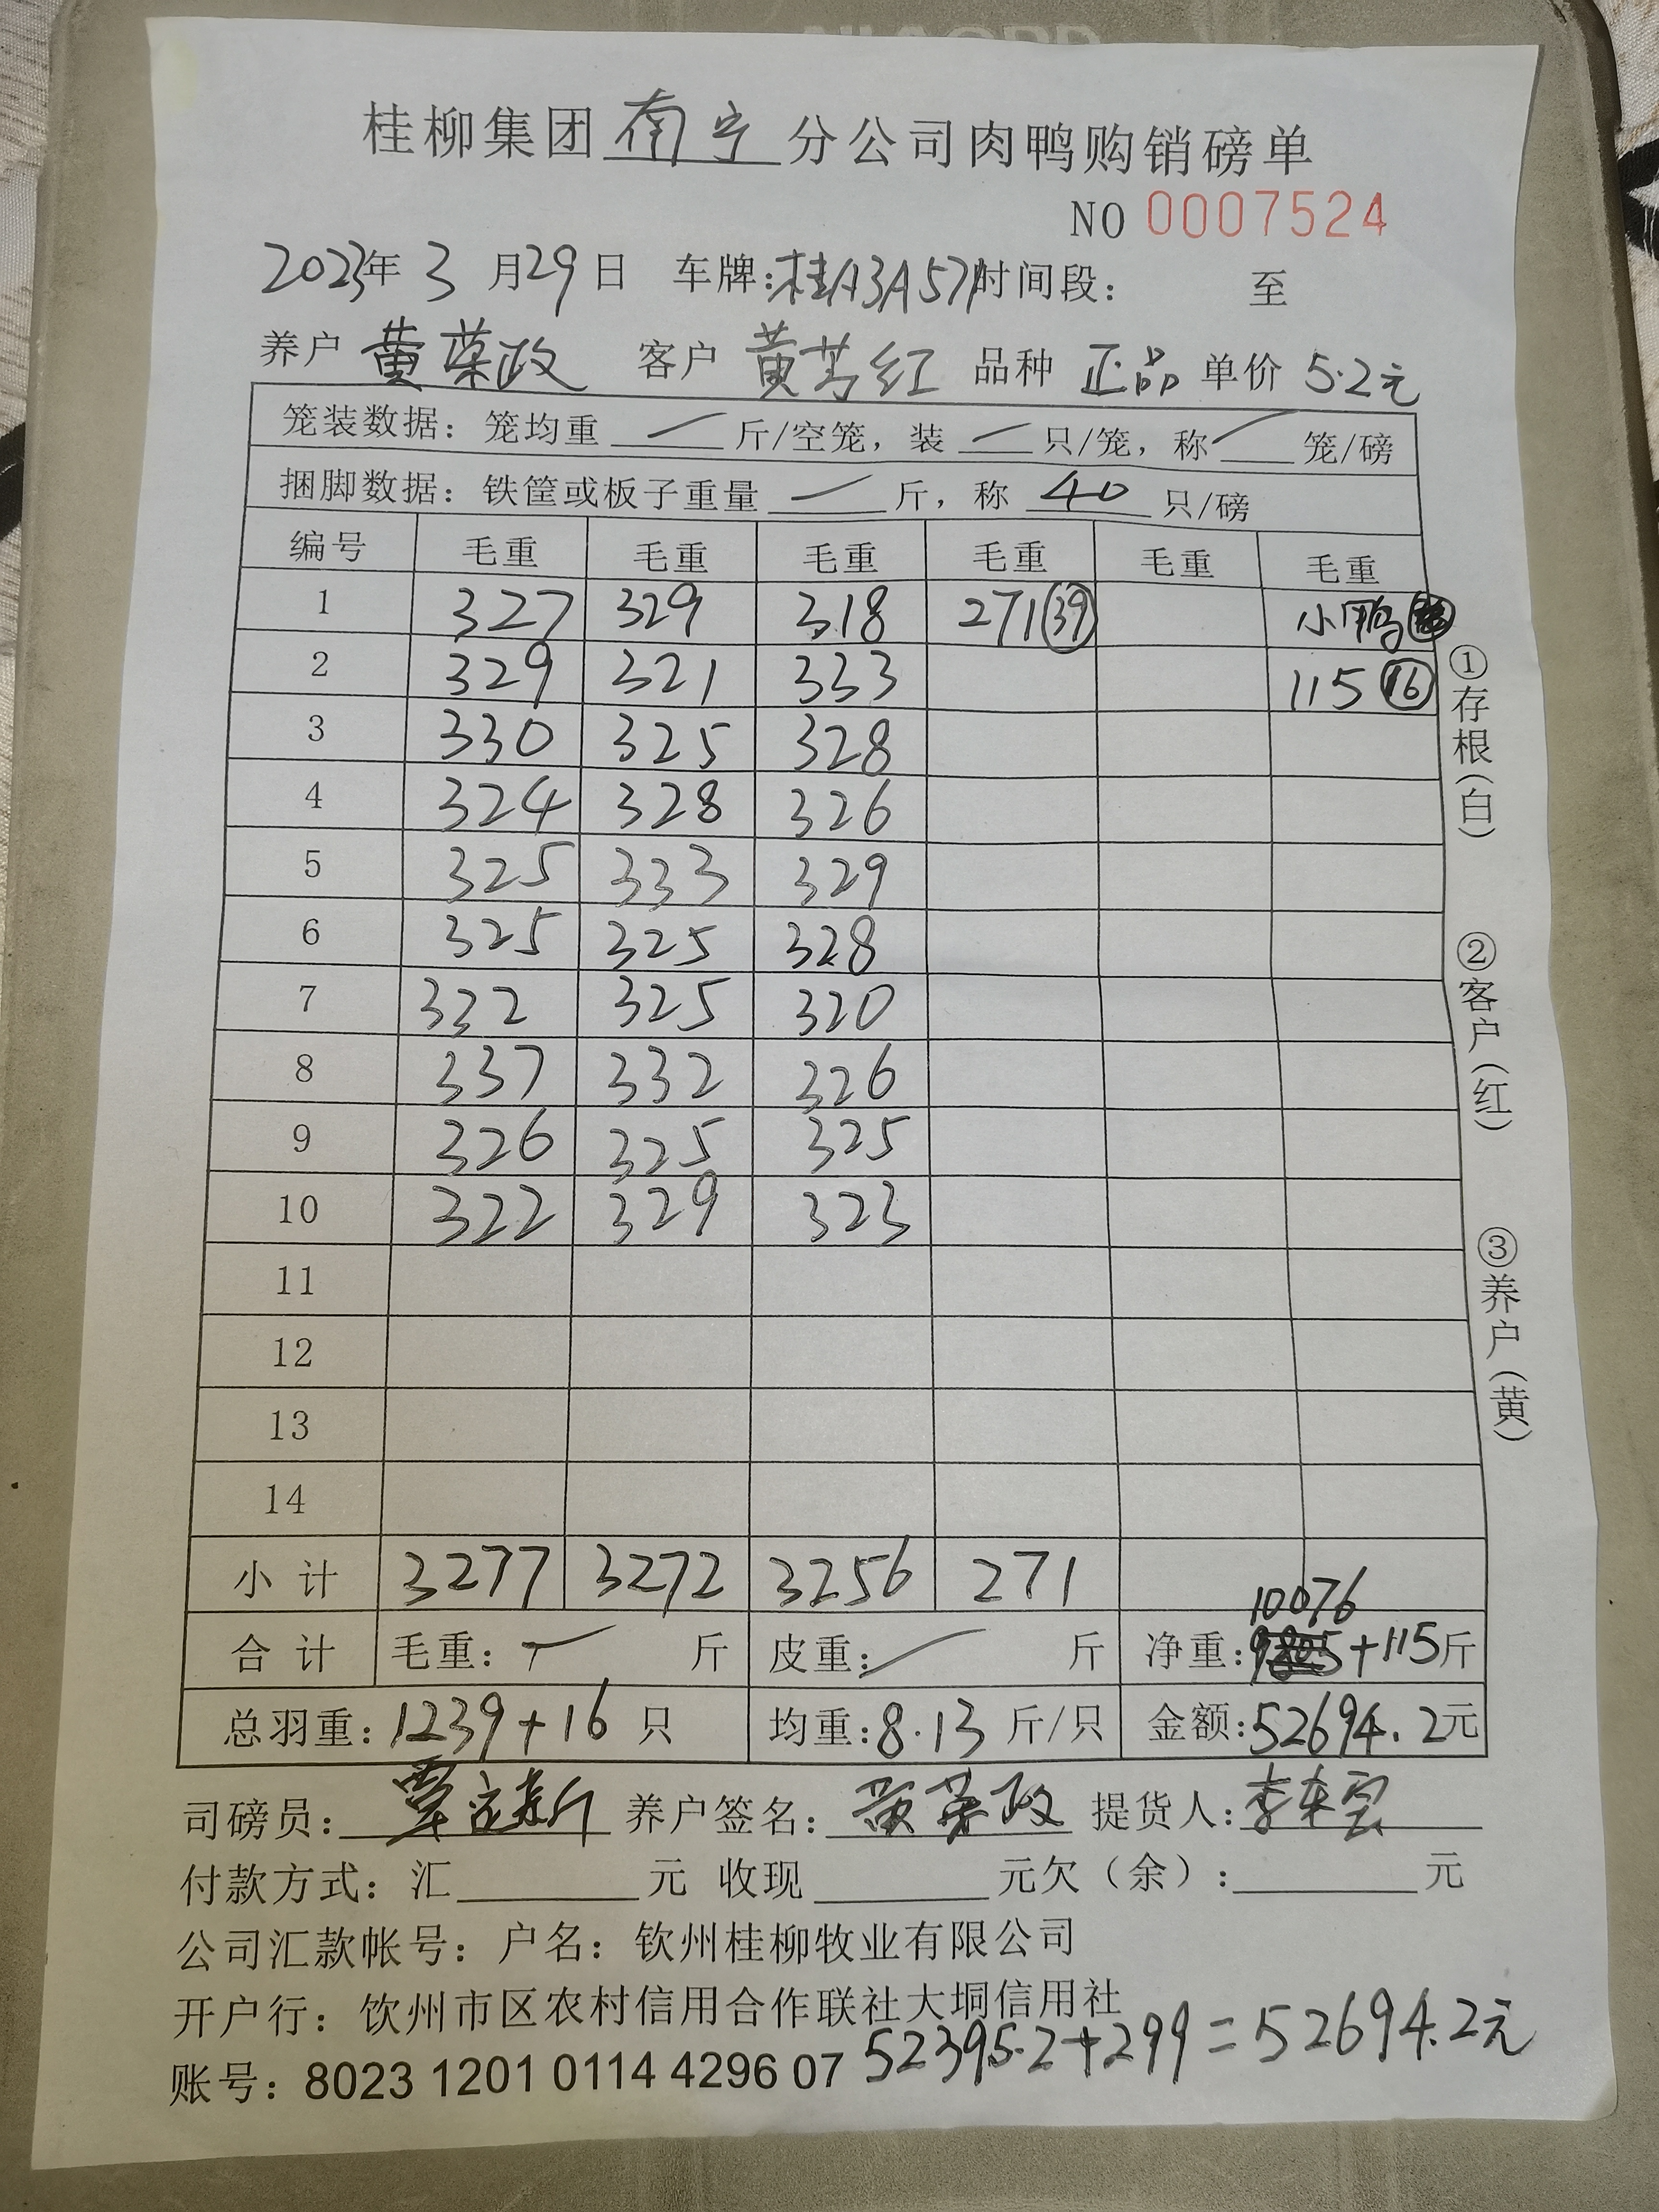 桂柳集团南宁分公司肉鸭购销磅单
NO 0007524
2023年 3 月29日 车牌:桂A3A571时间段: 至
养户 黄荣政 客户 黄芳红 品种 正品 单价 5.2元
笼装数据: 笼均重 / 斤/空笼, 装 / 只/笼, 称 / 笼/磅
捆脚数据: 铁筐或板子重量 / 斤, 称 40 只/磅
编号 毛重 毛重 毛重 毛重 毛重 毛重
1 327 329 318 271(39) 小鸭
2 329 321 333 115(16)
3 330 325 328
4 324 328 326
5 325 333 329
6 325 325 328
7 332 325 320
8 337 332 326
9 326 325 325
10 322 329 323
11
12
13
14
小计 3277 3272 3256 271
10076
合计 毛重: / 斤 皮重: / 斤 净重: +115斤
总羽重: 1239+16 只 均重: 8.13 斤/只 金额: 52694.2元
司磅员: 覃 养户签名: 黄荣政 提货人: 李
付款方式: 汇 元 收现 元欠（余）: 元
公司汇款帐号: 户名: 钦州桂柳牧业有限公司
开户行: 饮州市区农村信用合作联社大垌信用社
52395.2+299=52694.2元
账号: 8023 1201 0114 4296 07
①存根(白)
②客户(红)
③养户(黄)